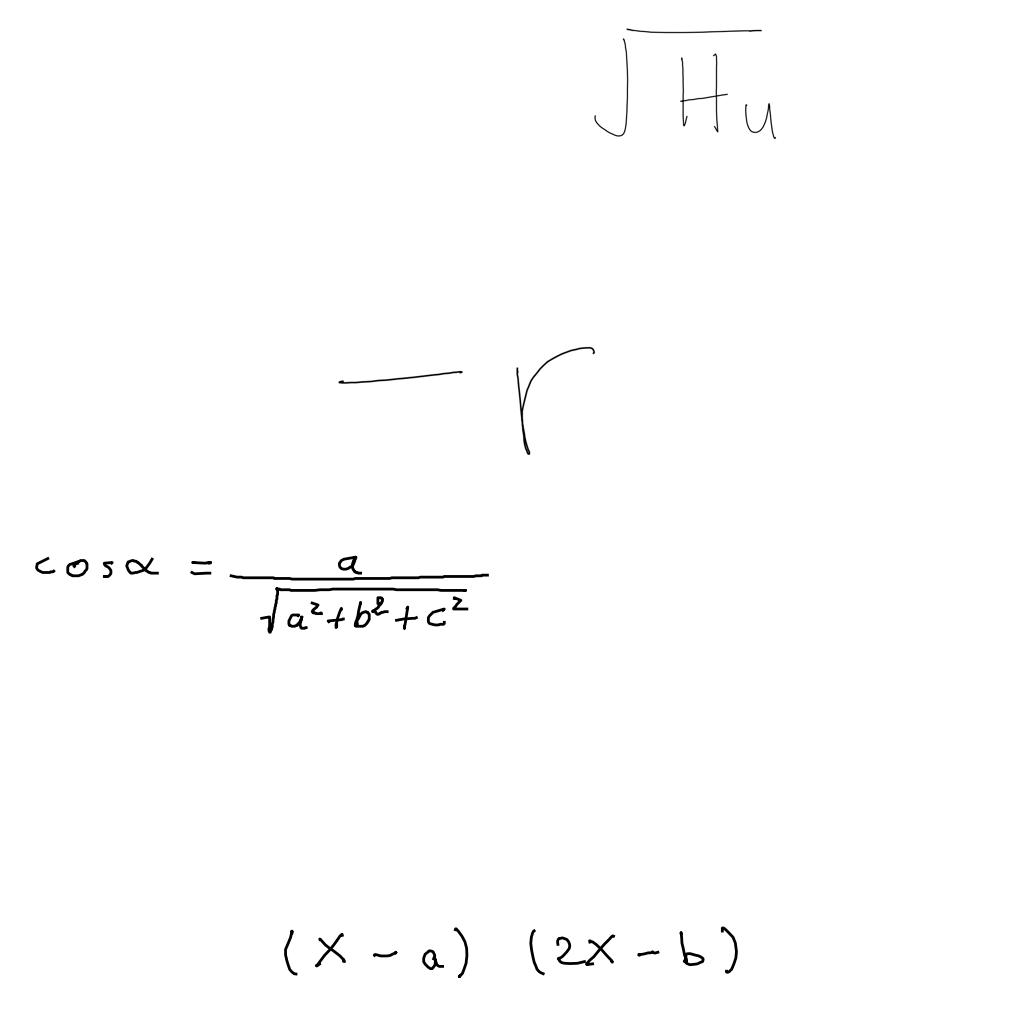 √Hu
− r
cosα = a/√(a²+b²+c²)
(x − a) (2x − b)